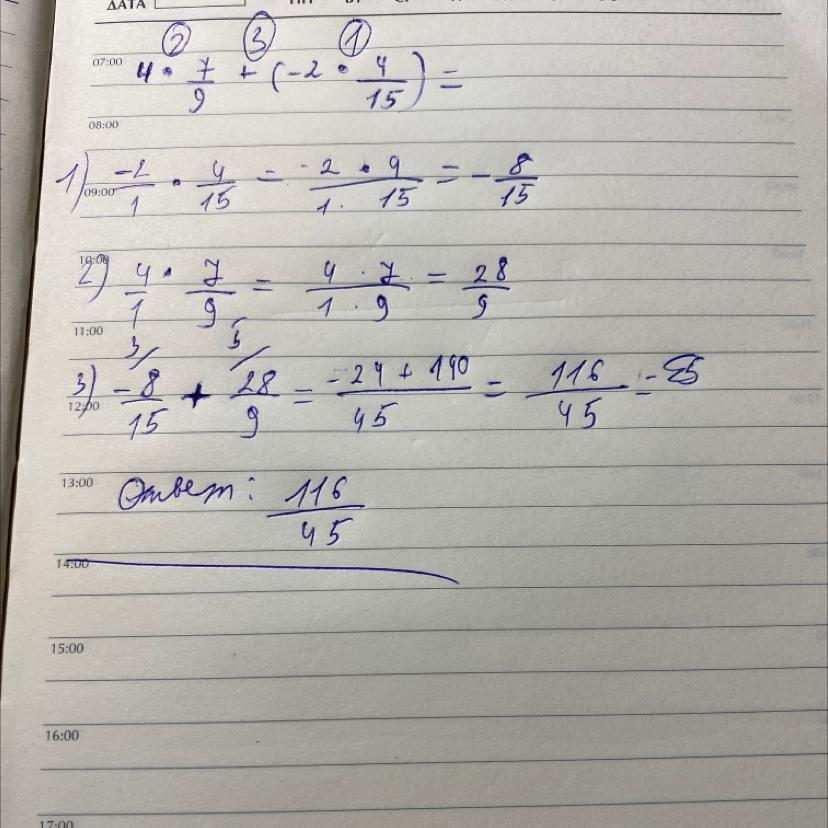 ДАТА
② ③ ①
07:00 4 • 7/9 + (-2 • 4/15) =
08:00
1) -2/1 • 4/15 = -2 • 4/1 · 15 = - 8/15
09:00
10:00
2) 4/1 • 7/9 = 4 · 7/1 · 9 = 28/9
11:00
3/ 5/
3) -8/15 + 28/9 = -24 + 140/45 = 116/45
12:00
13:00 Ответ: 116/45
14:00
15:00
16:00
17:00